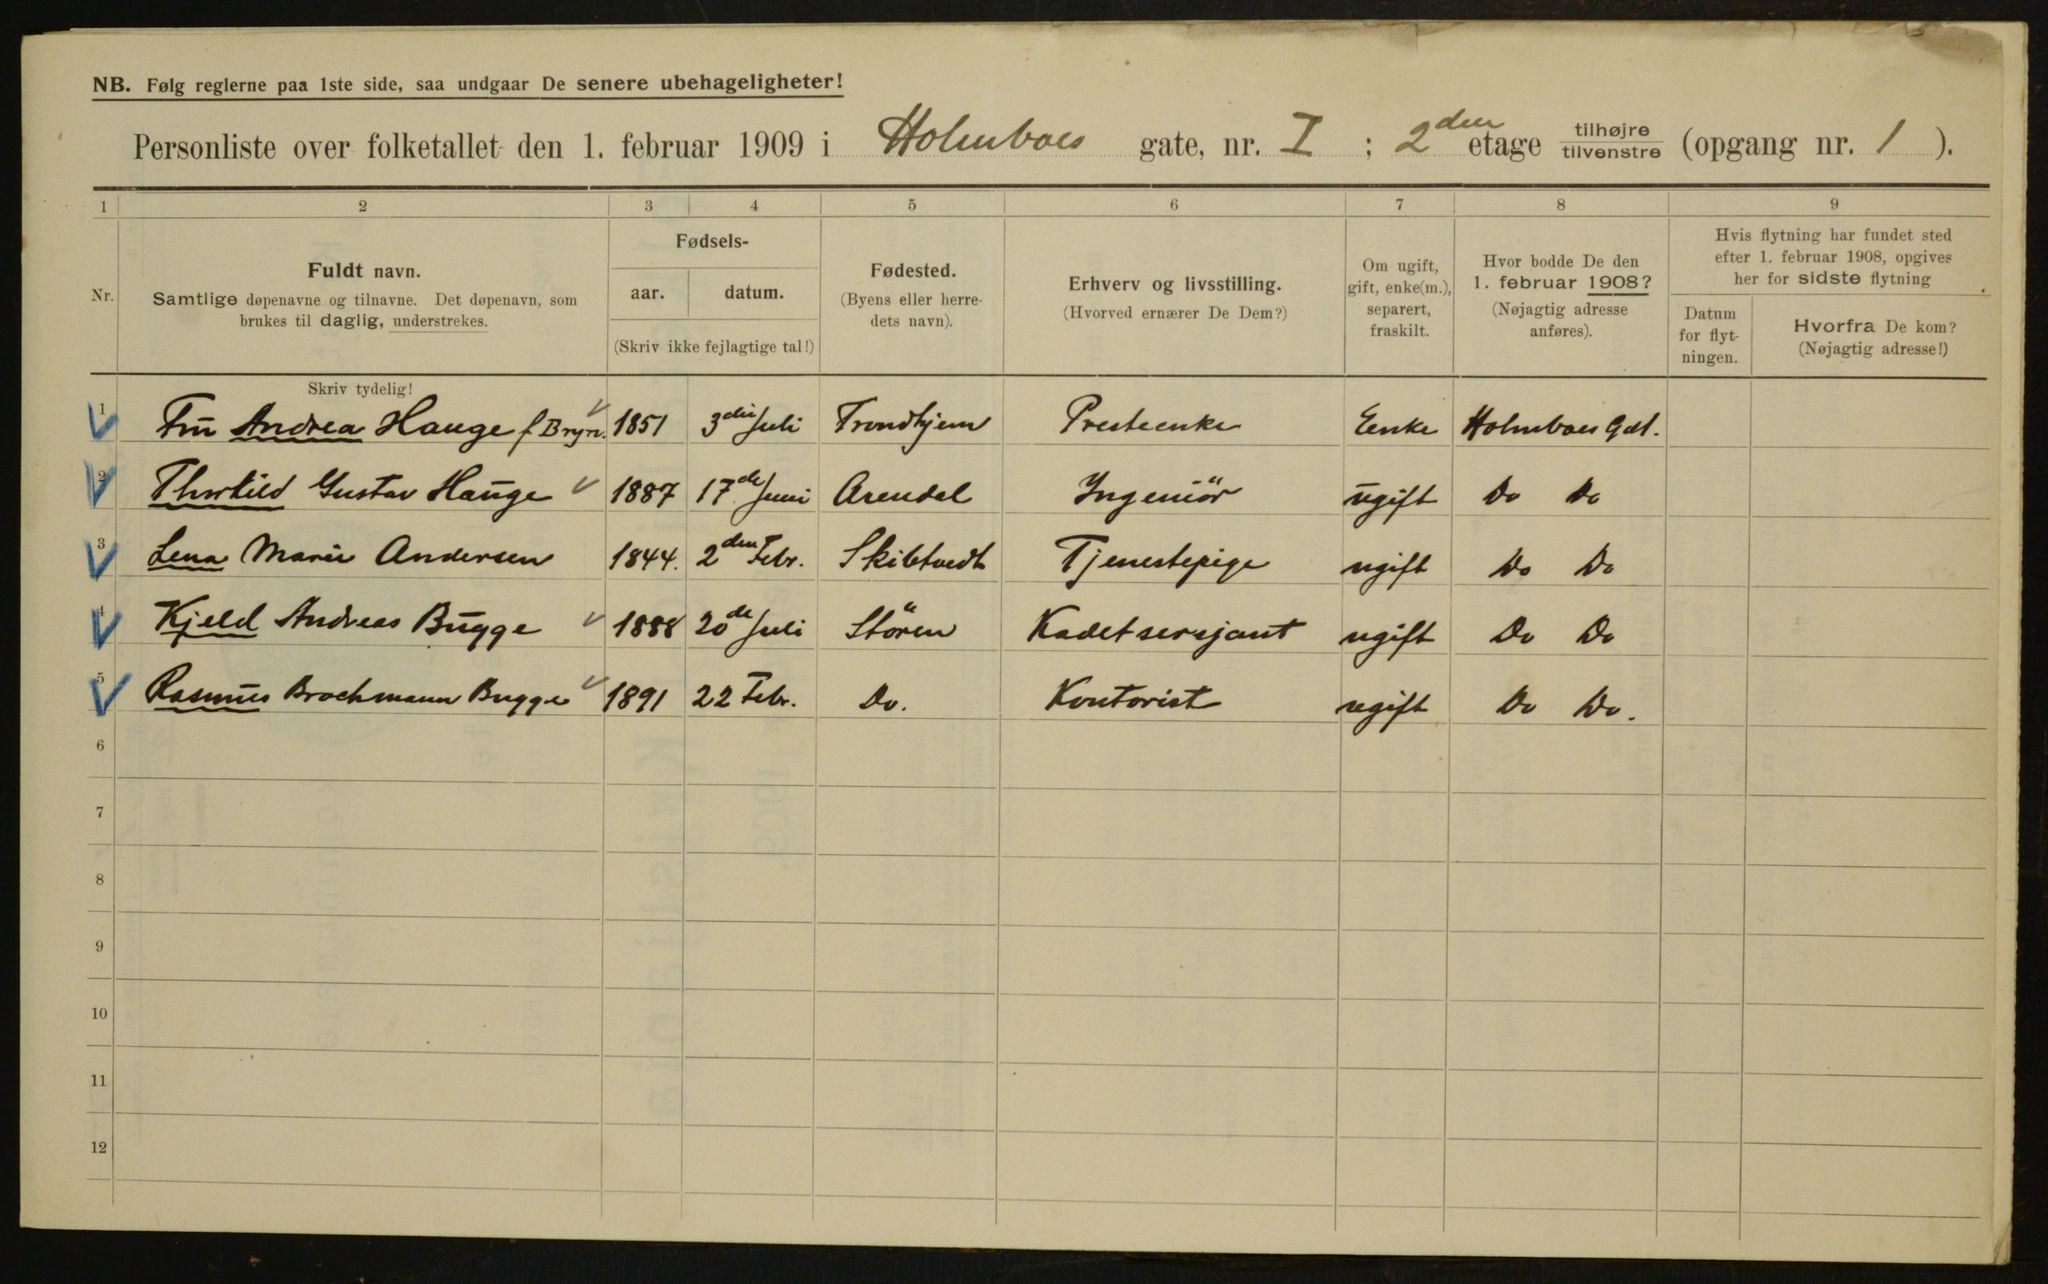 NB. Følg reglerne paa 1ste side, saa undgaar De senere ubehageligheter!
Personliste over folketallet den 1. februar 1909 i Holmboes gate, nr. I ; 2den etage tilhøjre tilvenstre (opgang nr. 1 ).
1 2 3 4 5 6 7 8 9
Nr.
Fuldt navn.
Samtlige døpenavne og tilnavne. Det døpenavn, som
brukes til daglig, understrekes.
Fødsels-
aar. datum.
(Skriv ikke fejlagtige tal!)
Fødested.
(Byens eller herre-
dets navn).
Erhverv og livsstilling.
(Hvorved ernærer De Dem?)
Om ugift,
gift, enke(m.),
separert,
fraskilt.
Hvor bodde De den
1. februar 1908?
(Nøjagtig adresse
anføres).
Hvis flytning har fundet sted
efter 1. februar 1908, opgives
her for sidste flytning
Datum
for flyt-
ningen.
Hvorfra De kom?
(Nøjagtig adresse!)
Skriv tydelig!
1 Fru Andrea Hauge f Bryn. 1851 3die Juli Trondhjem Presteenke Eenke Holmboes Gat.
2 Thorkild Gustav Hauge 1887 17de Juni Arendal Ingeniör ugift Do Do
3 Lena Marie Andersen 1844. 2den Febr. Skibtvedt Tjenestepige ugift Do Do
4 Kjeld Andreas Bugge 1888 20de Juli Stören Kadetsersjant ugift Do Do
5 Rasmus Brochmann Bugge 1891 22 Febr. Do. Kontorist ugift Do Do.
6
7
8
9
10
11
12